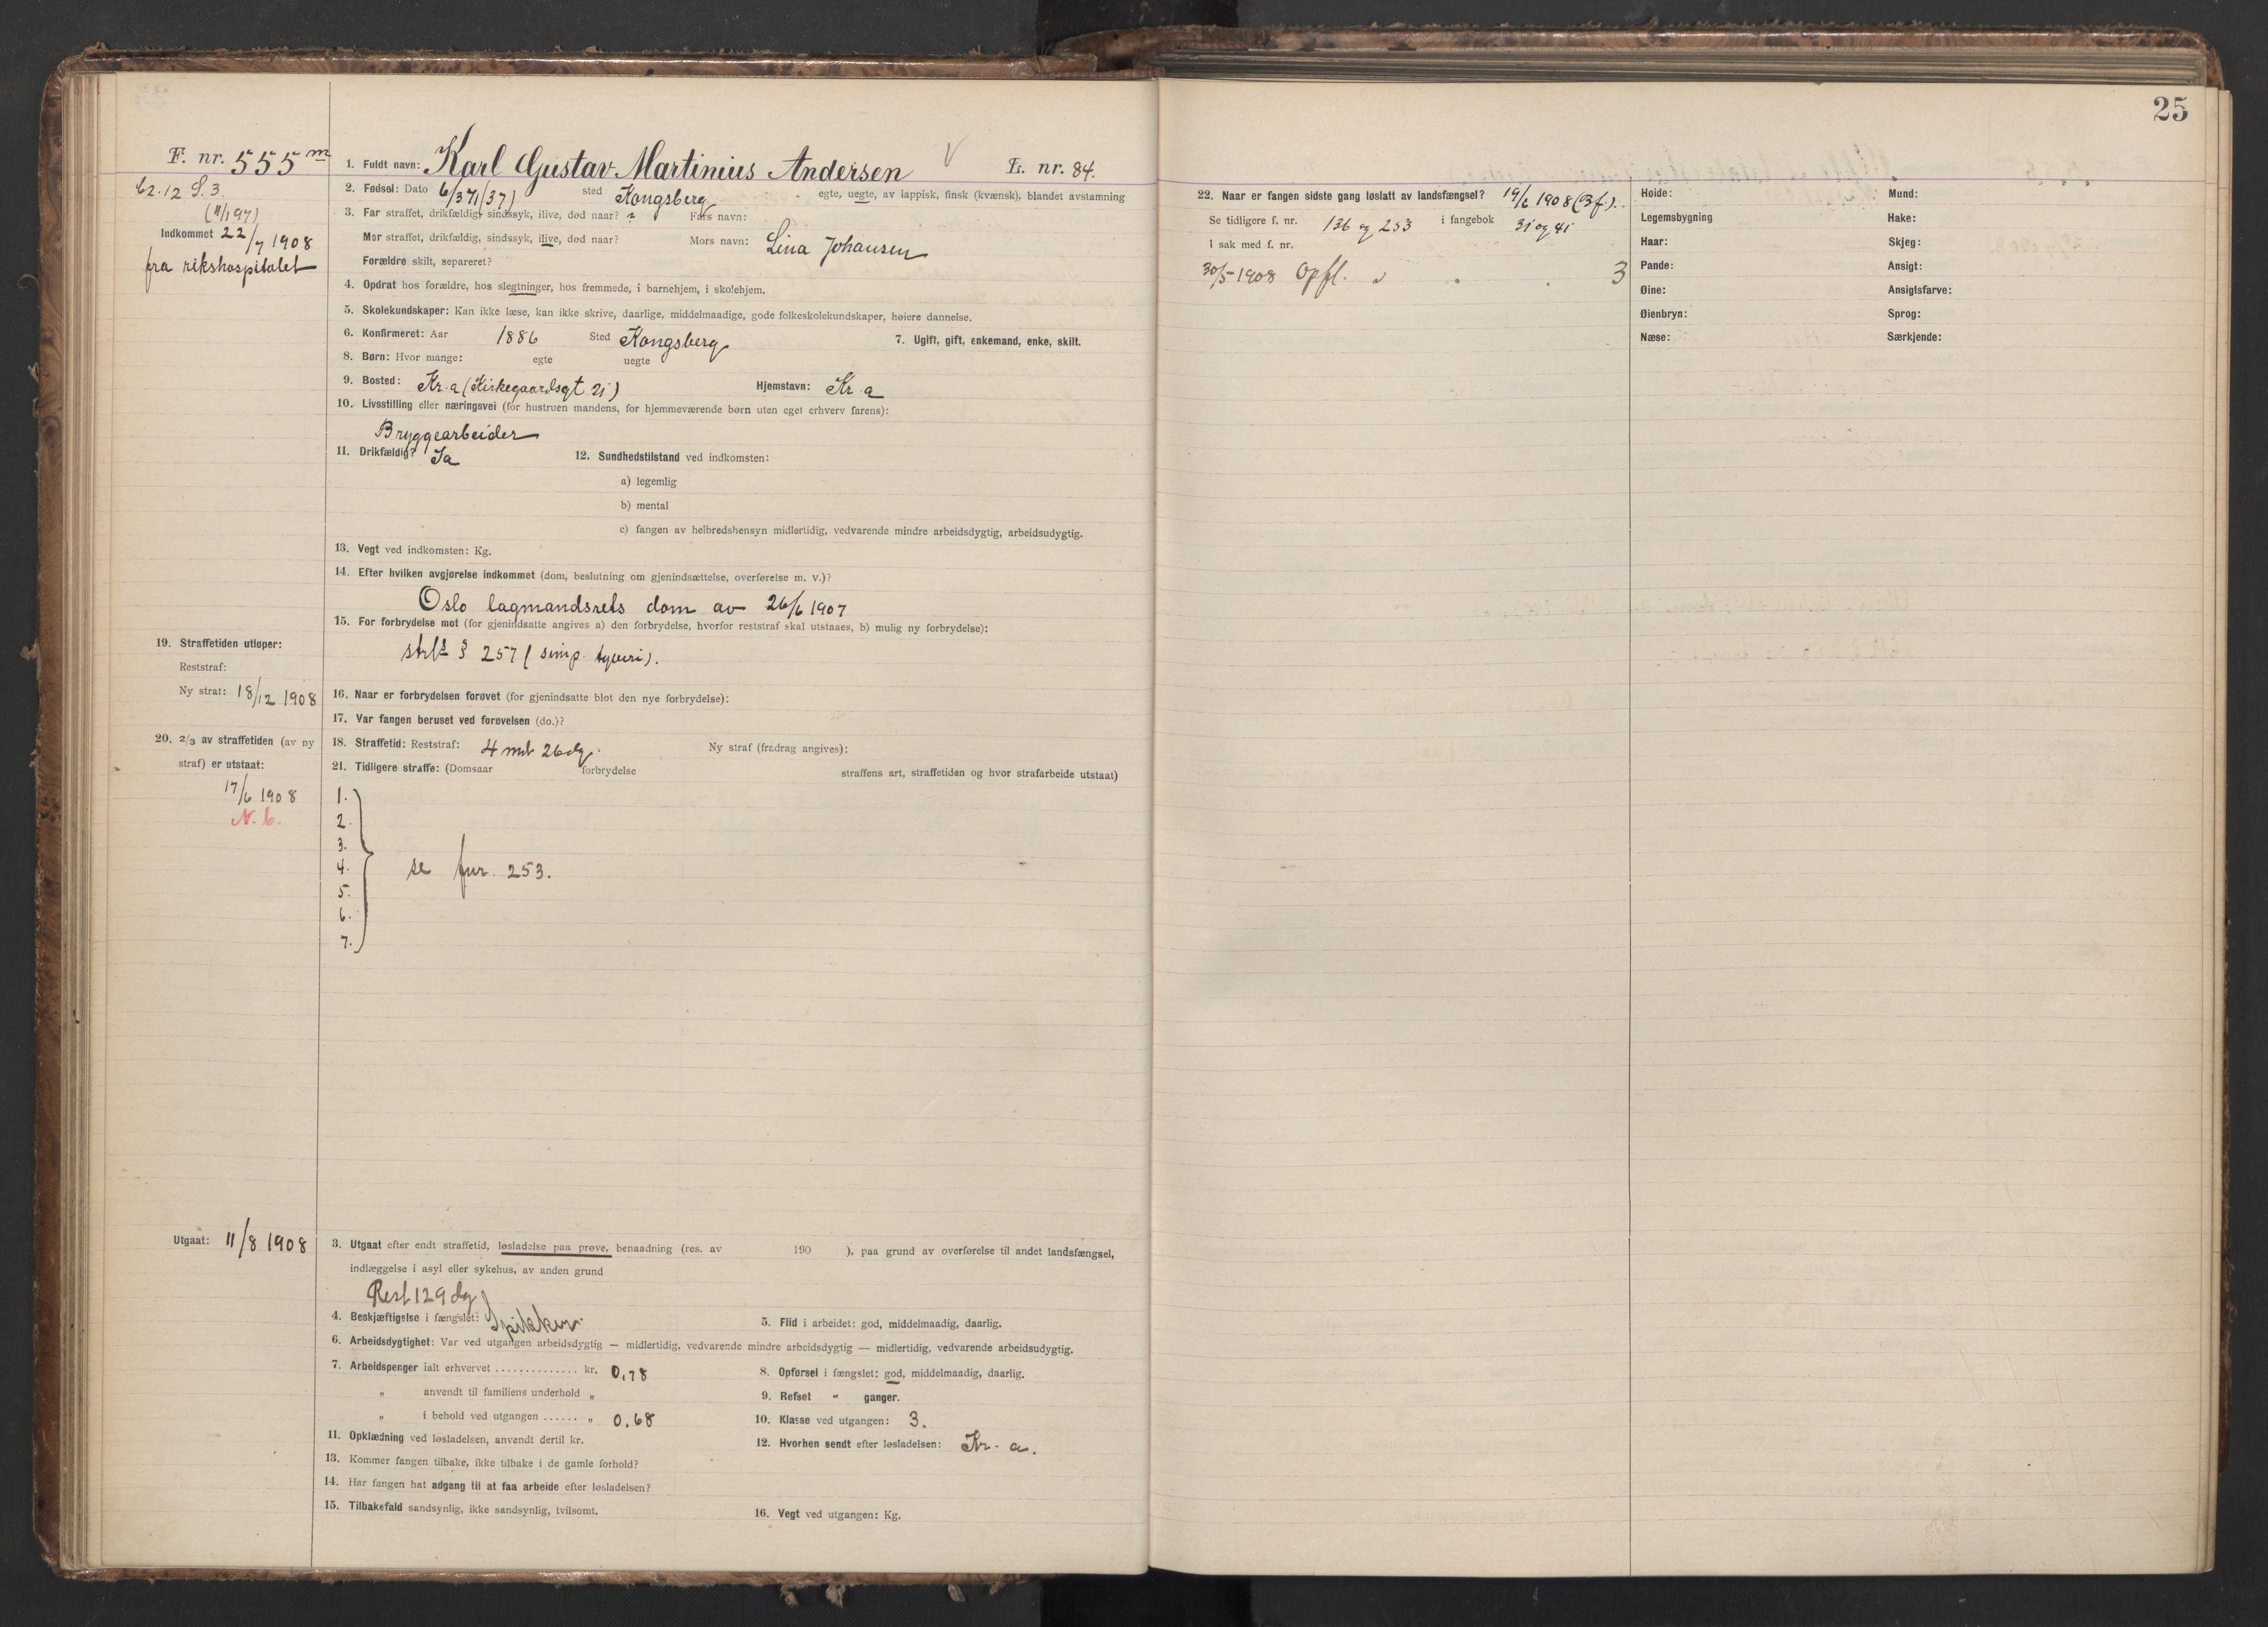 25
F. nr. 555 m
1. Fuldt navn: Karl Gustav Martinius Andersen V Fr. nr. 84.
62.12 S. 3.
2. Fødsel: Dato 6/3 71 (37) sted Kongsberg egte, uegte, av lappisk, finsk (kvænsk), blandet avstamning
3. Far straffet, drikfældig, sindssyk, ilive, død naar? ? Fars navn:
Indkommet 22/7 1908
Mor straffet, drikfældig, sindssyk, ilive, død naar? Mors navn: Lina Johansen
fra rikshospitalet
Forældre skilt, separeret?
4. Opdrat hos forældre, hos slegtninger, hos fremmede, i barnehjem, i skolehjem.
5. Skolekundskaper: Kan ikke læse, kan ikke skrive, daarlige, middelmaadige, gode folkeskolekundskaper, høiere dannelse.
6. Konfirmeret: Aar 1886 Sted Kongsberg 7. Ugift, gift, enkemand, enke, skilt.
8. Børn: Hvor mange: egte uegte
9. Bosted: Kr.a (Kirkegaardsgt 21) Hjemstavn: Kr.a
10. Livsstilling eller næringsvei (for hustruen mandens, for hjemmeværende børn uten eget erhverv farens):
Bryggearbeider
11. Drikfældig? Ja 12. Sundhedstilstand ved indkomsten:
a) legemlig
b) mental
c) fangen av helbredshensyn midlertidig, vedvarende mindre arbeidsdygtig, arbeidsudygtig.
13. Vegt ved indkomsten: Kg.
14. Efter hvilken avgjørelse indkommet (dom, beslutning om gjenindsættelse, overførelse m. v.)?
Oslo lagmandsrets dom av 26/6 1907
15. For forbrydelse mot (for gjenindsatte angives a) den forbrydelse, hvorfor reststraf skal utstaaes, b) mulig ny forbrydelse):
strfl § 257 (simp. tyveri).
19. Straffetiden utløper:
Reststraf:
Ny straf: 18/12 1908
16. Naar er forbrydelsen forøvet (for gjenindsatte blot den nye forbrydelse):
17. Var fangen beruset ved forøvelsen (do.)?
20. 2/3 av straffetiden (av ny
straf) er utstaat:
17/6 1908
N. b.
18. Straffetid: Reststraf: 4 md 26 dg. Ny straf (fradrag angives):
21. Tidligere straffe: (Domsaar forbrydelse straffens art, straffetiden og hvor strafarbeide utstaat)
1.
2.
3.
4. se fnr. 253.
5.
6.
7.
Utgaat: 11/8 1908
3. Utgaat efter endt straffetid, løsladelse paa prøve, benaadning (res. av 190 ), paa grund av overførelse til andet landsfængsel,
indlæggelse i asyl eller sykehus, av anden grund
Rest 129 dg
4. Beskjæftigelse i fængslet: Spikker 5. Flid i arbeidet: god, middelmaadig, daarlig.
6. Arbeidsdygtighet: Var ved utgangen arbeidsdygtig — midlertidig, vedvarende mindre arbeidsdygtig — midlertidig, vedvarende arbeidsudygtig.
7. Arbeidspenger ialt erhvervet .............. kr. 0,78 8. Opførsel i fængslet: god, middelmaadig, daarlig.
„ anvendt til familiens underhold „ 9. Refset " ganger.
„ i behold ved utgangen ...... „ 0.68 10. Klasse ved utgangen: 3.
11. Opklædning ved løsladelsen, anvendt dertil kr. 12. Hvorhen sendt efter løsladelsen: Kr. a.
13. Kommer fangen tilbake, ikke tilbake i de gamle forhold?
14. Har fangen hat adgang til at faa arbeide efter løsladelsen?
15. Tilbakefald sandsynlig, ikke sandsynlig, tvilsomt.
16. Vegt ved utgangen: Kg.
22. Naar er fangen sidste gang løslatt av landsfængsel? 19/6 1908 (Bf.).
Se tidligere f. nr. 136 og 253 i fangebok 31 og 41
I sak med f. nr.
30/5 1908 Opfl. 3
Høide: Mund:
Legemsbygning Hake:
Haar: Skjeg:
Pande: Ansigt:
Øine: Ansigtsfarve:
Øienbryn: Sprog:
Næse: Særkjende: